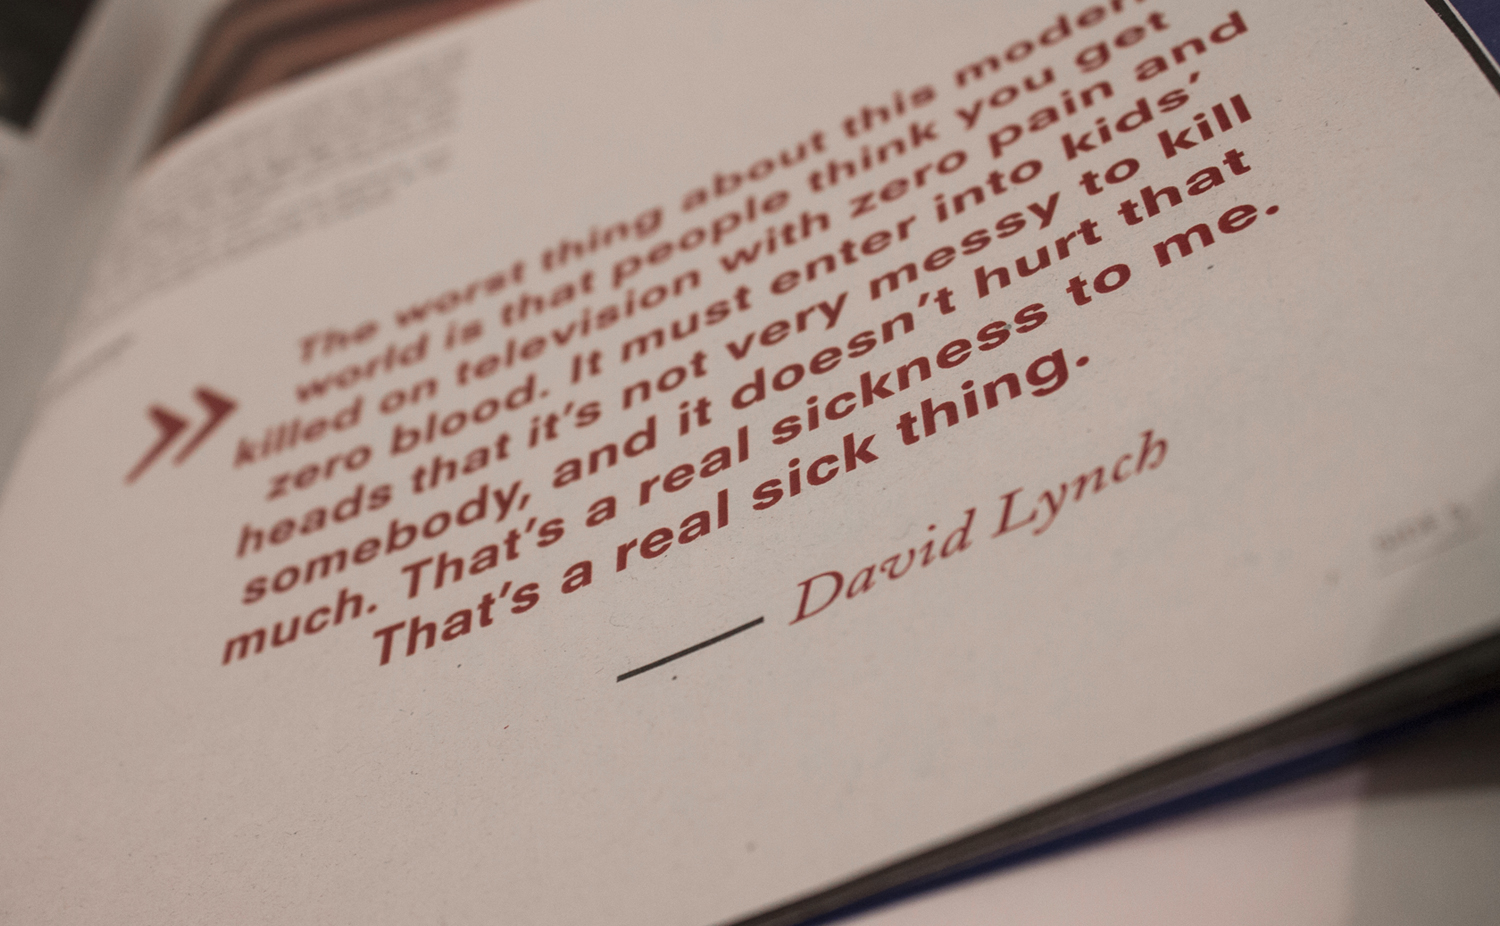 The worst thing about this modern
world is that people think you get
killed on television with zero pain and
zero blood. It must enter into kids’
heads that it’s not very messy to kill
somebody, and it doesn’t hurt that
much. That’s a real sickness to me.
That’s a real sick thing.
David Lynch